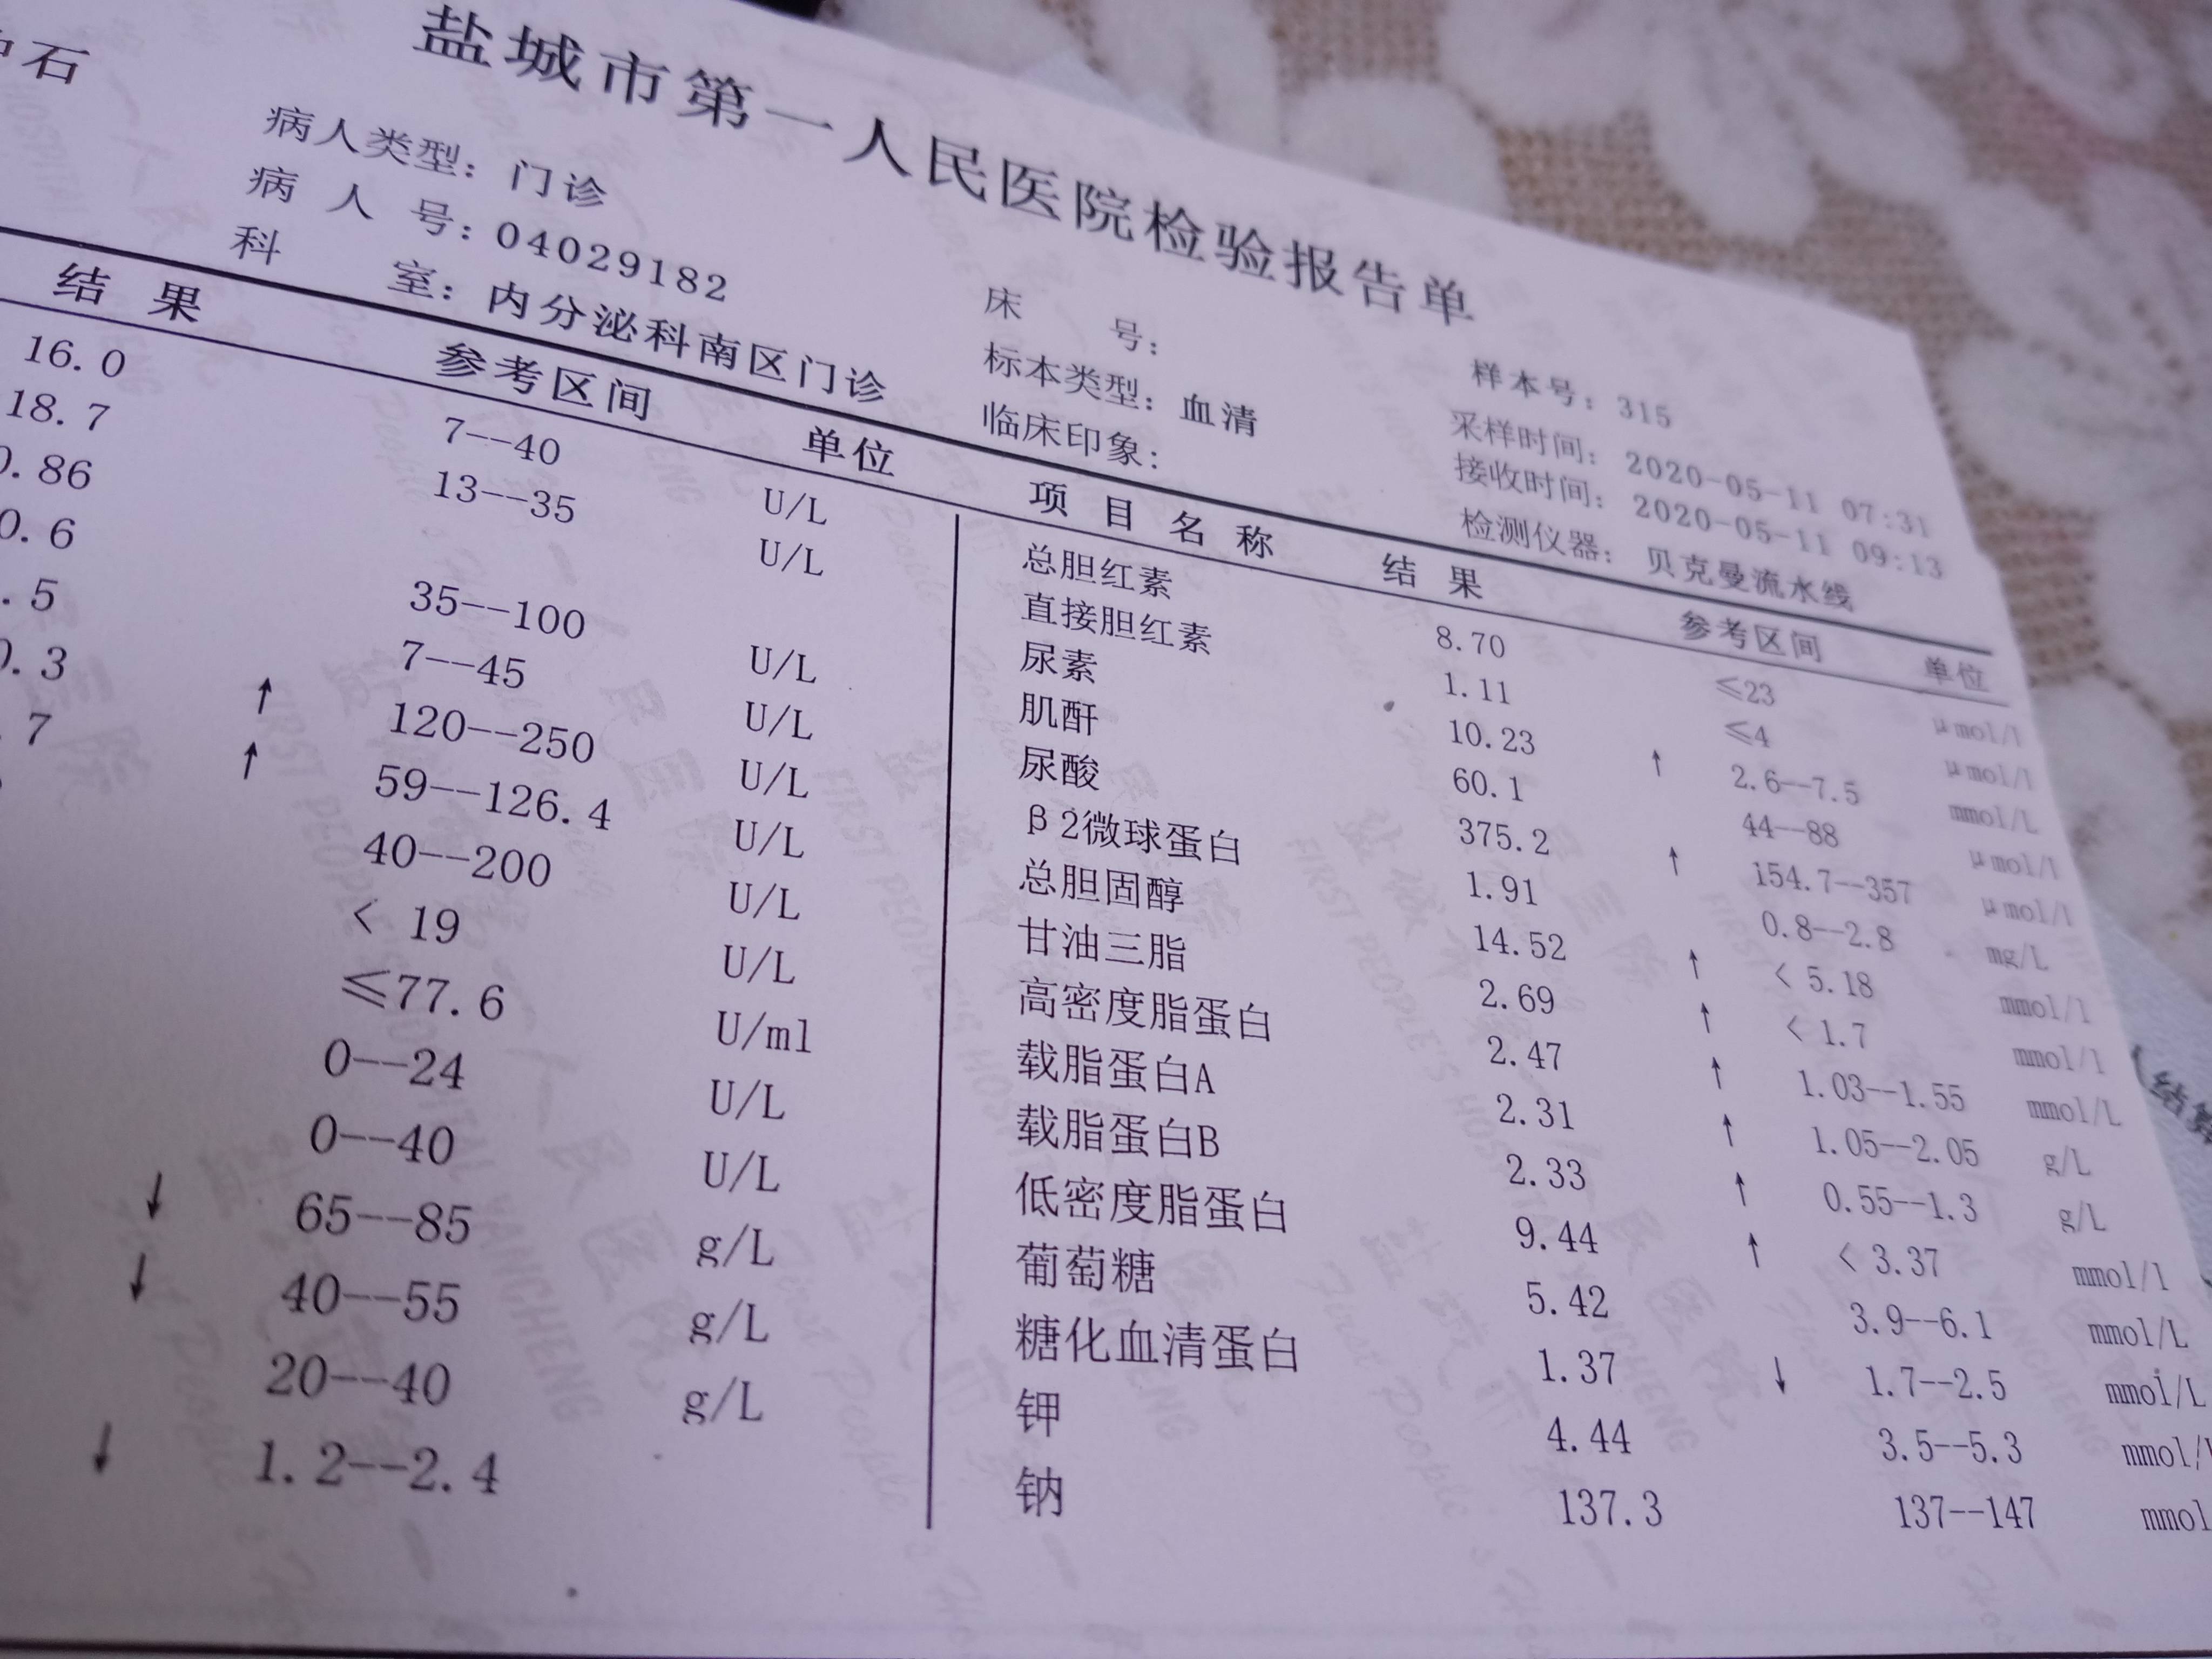 石
盐城市第一人民医院检验报告单
病人类型：门诊
病人号：04029182
科室：内分泌科南区门诊
床号：
标本类型：血清
临床印象：
样本号：315
采样时间：2020-05-11 07:31
接收时间：2020-05-11 09:13
检测仪器：贝克曼流水线
结果 参考区间 单位
16.0 7--40 U/L
18.7 13--35 U/L
.86
0.6 35--100 U/L
.5 7--45 U/L
.3 ↑ 120--250 U/L
7 ↑ 59--126.4 U/L
40--200 U/L
< 19 U/L
≤77.6 U/ml
0--24 U/L
0--40 U/L
↓ 65--85 g/L
↓ 40--55 g/L
20--40 g/L
↓ 1.2--2.4
项目名称 结果 参考区间 单位
总胆红素 8.70 ≤23 μmol/l
直接胆红素 1.11 ≤4 μmol/l
尿素 10.23 ↑ 2.6--7.5 mmol/L
肌酐 60.1 44--88 μmol/l
尿酸 375.2 ↑ 154.7--357 μmol/l
β2微球蛋白 1.91 0.8--2.8 mg/L
总胆固醇 14.52 ↑ < 5.18 mmol/l
甘油三脂 2.69 ↑ < 1.7 mmol/l
高密度脂蛋白 2.47 ↑ 1.03--1.55 mmol/L
载脂蛋白A 2.31 ↑ 1.05--2.05 g/L
载脂蛋白B 2.33 ↑ 0.55--1.3 g/L
低密度脂蛋白 9.44 ↑ < 3.37 mmol/l
葡萄糖 5.42 3.9--6.1 mmol/L
糖化血清蛋白 1.37 ↓ 1.7--2.5 mmol/L
钾 4.44 3.5--5.3 mmol/
钠 137.3 137--147 mmol